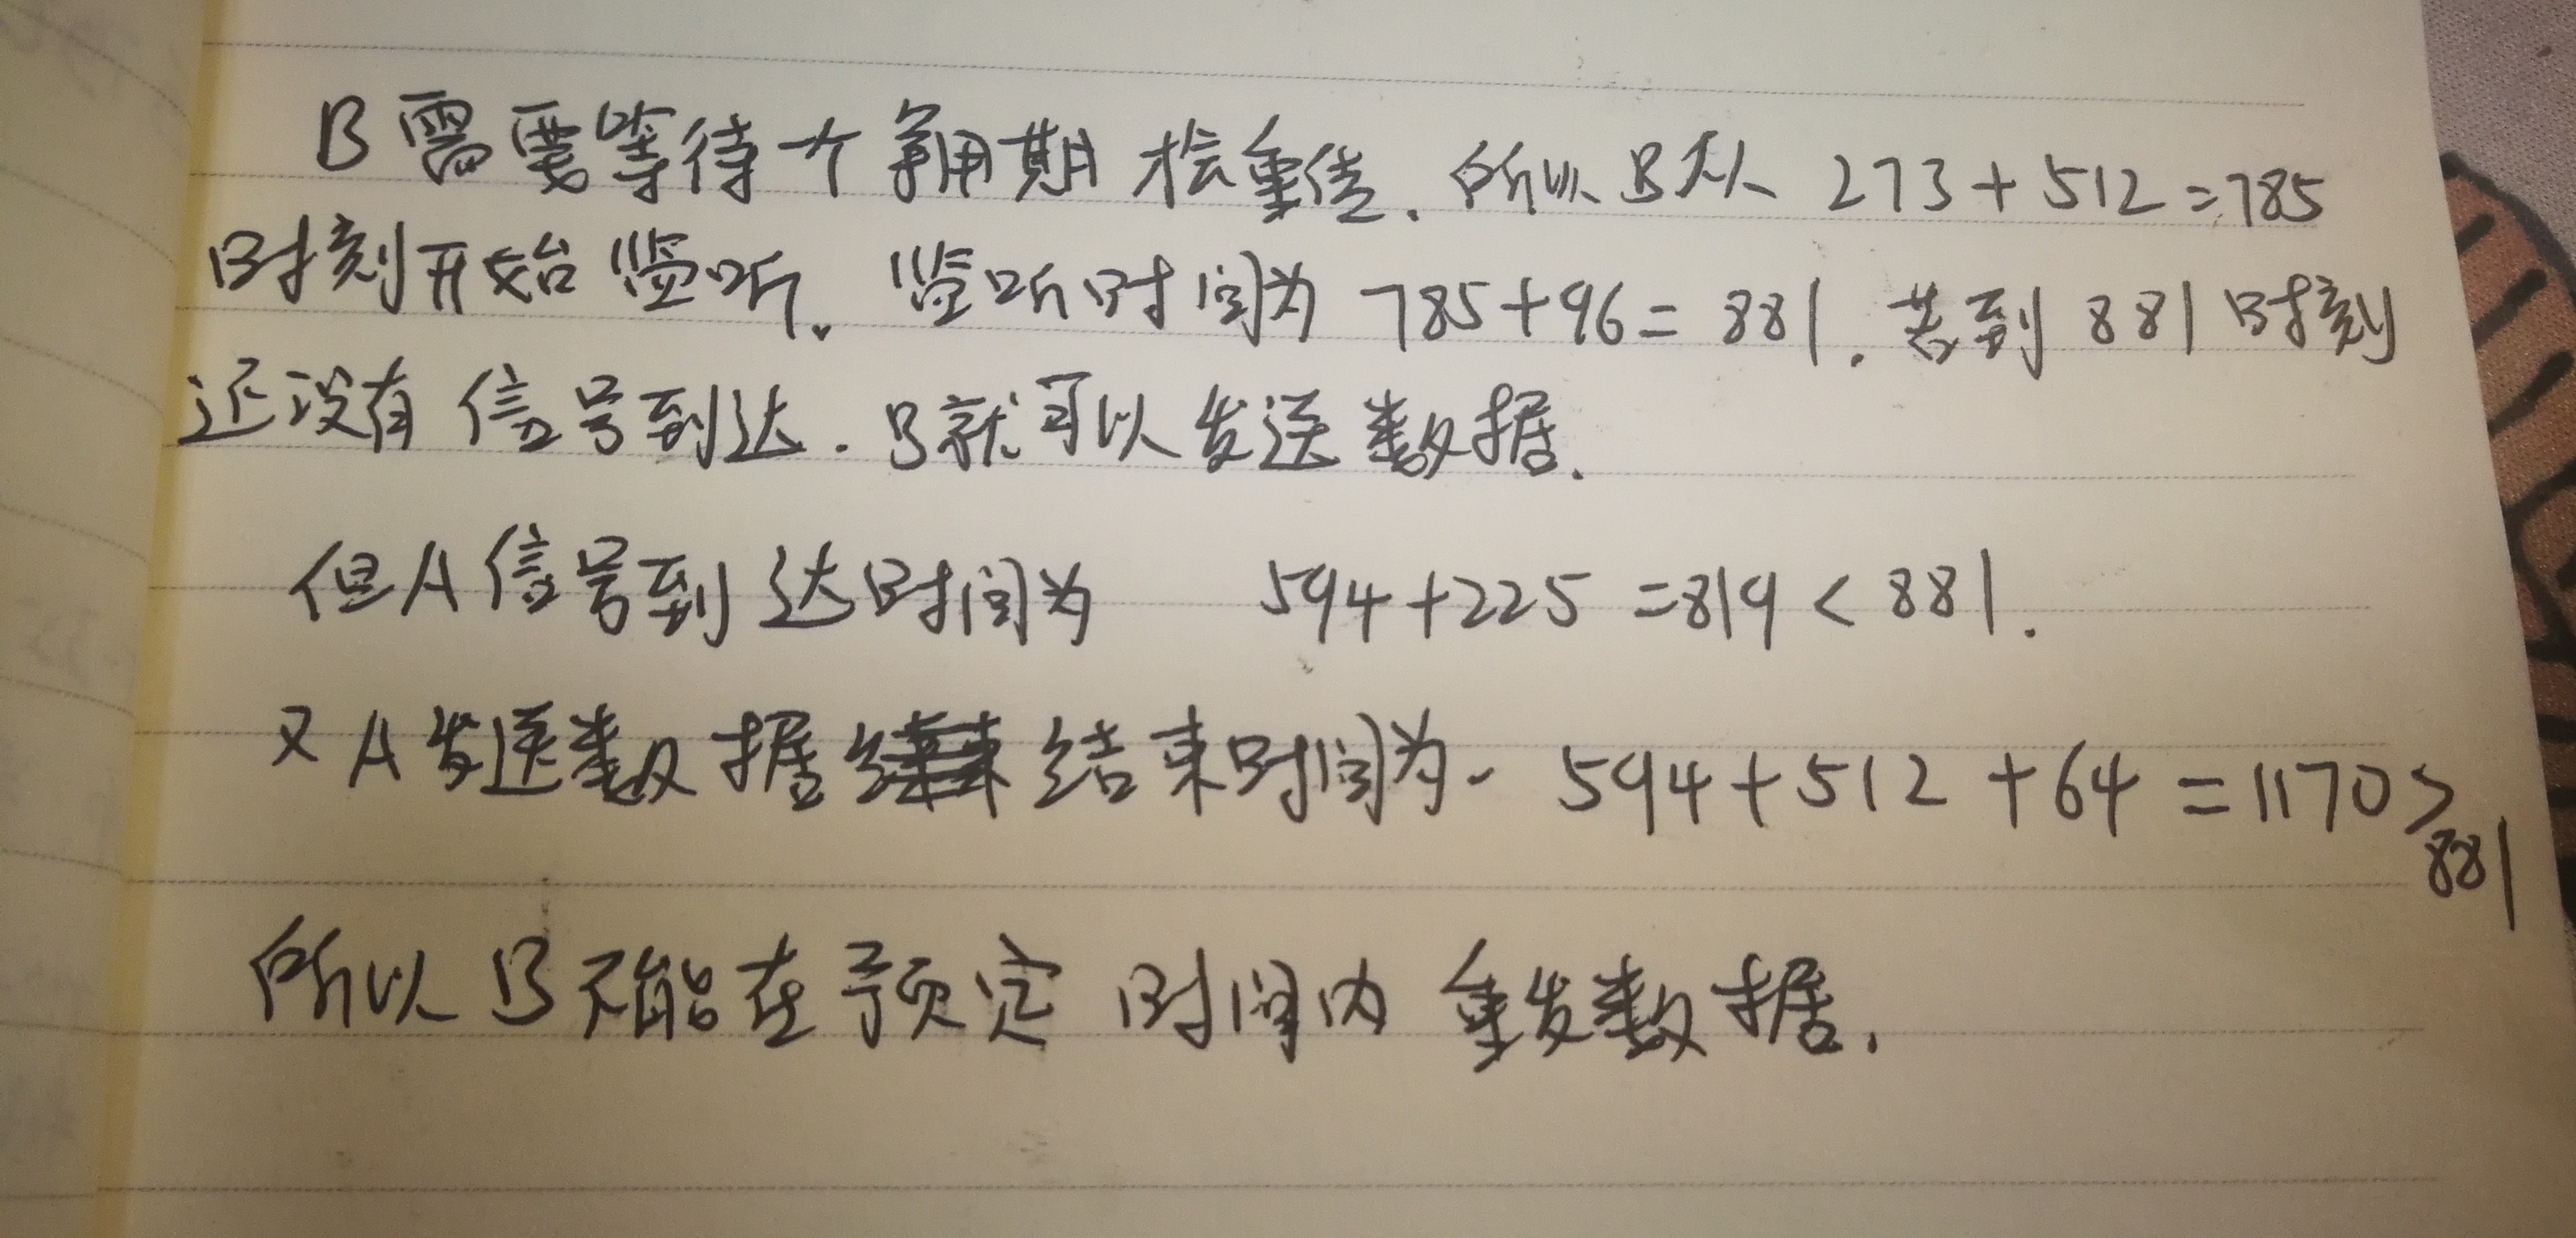 B需要等待一个争用期才会重传.所以B从 273+512=785
时刻开始监听。监听时间为 785+96=881.若到881时刻
还没有信号到达.B就可以发送数据.
但A信号到达时间为 594+225=819<881.
又A发送数据结束时间为- 594+512+64=1170>
881
所以B不能在预定时间内重发数据.